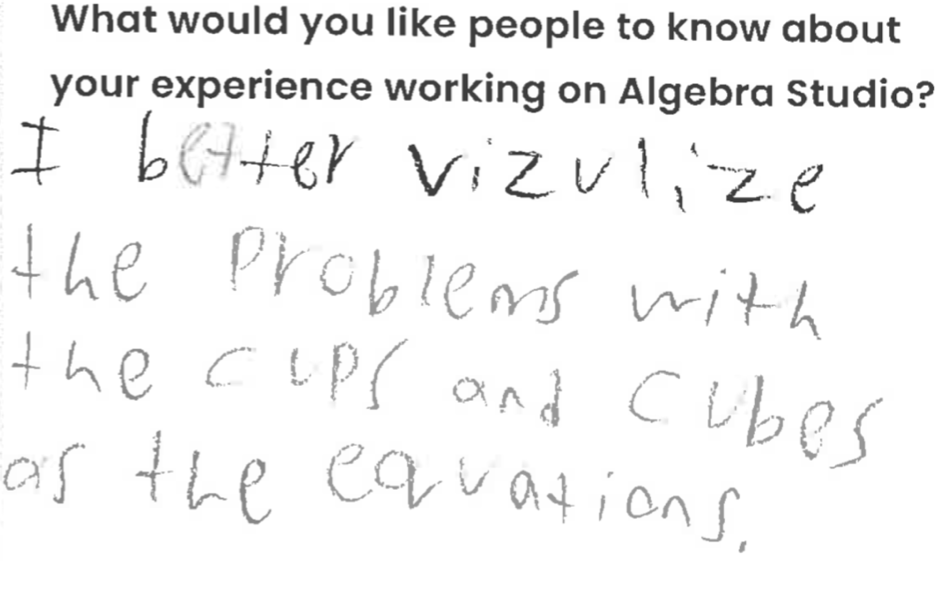 What would you like people to know about
your experience working on Algebra Studio?
I better vizulize
the problems with
the cups and cubes
as the equations.